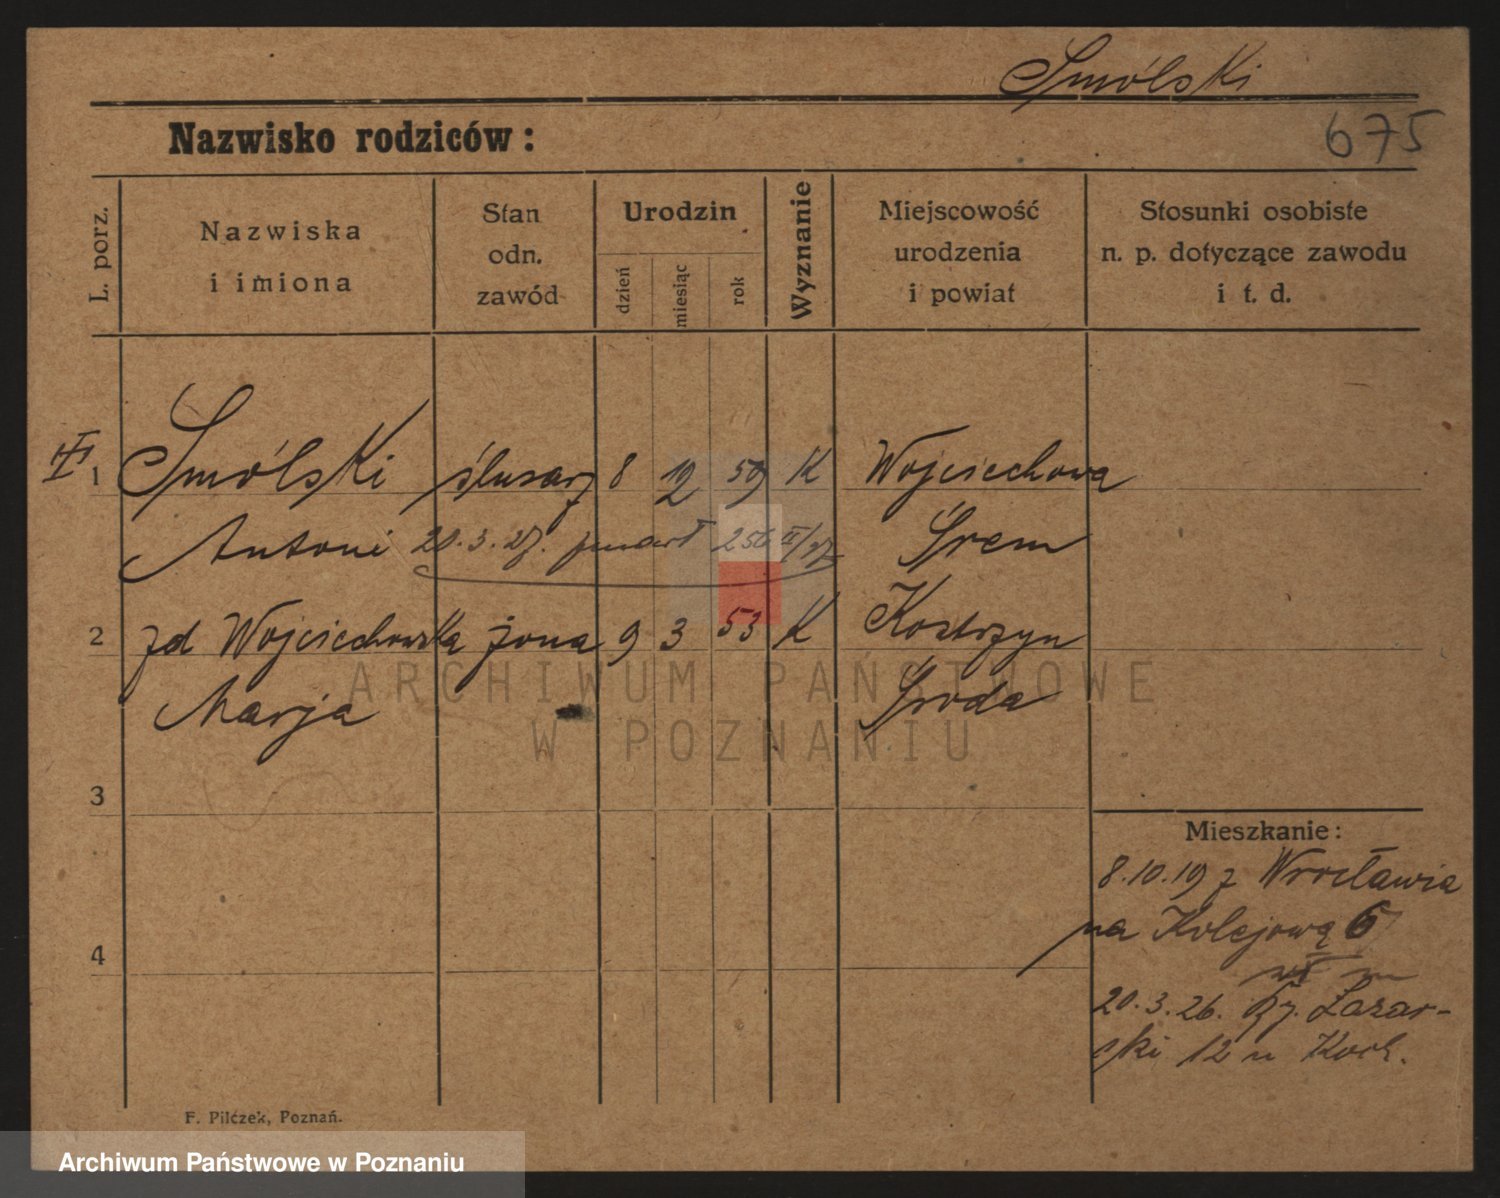 Smólski
675
Nazwisko rodziców:
L. porz.
Nazwiska
i imiona
Stan
odn.
zawód
Urodzin
dzień
miesiąc
rok
Wyznanie
Miejscowość
urodzenia
i powiat
Stosunki osobiste
n. p. dotyczące zawodu
i t. d.
1 Smólski ślusarz 8 12 59 K Wojciechowa
Antoni 20.3.27. zmarł 256 II/27 Śrem
2 zd Wojciechowska żona 9 3 53 K Kostrzyn
Marja Środa
3
4
Mieszkanie:
8.10.19 z Wrocławia
na Kolejową 6
20.3.26. Łazar-
ski 12 u Koch.
F. Pilczek, Poznań.
ARCHIWUM PAŃSTWOWE
W POZNANIU
Archiwum Państwowe w Poznaniu